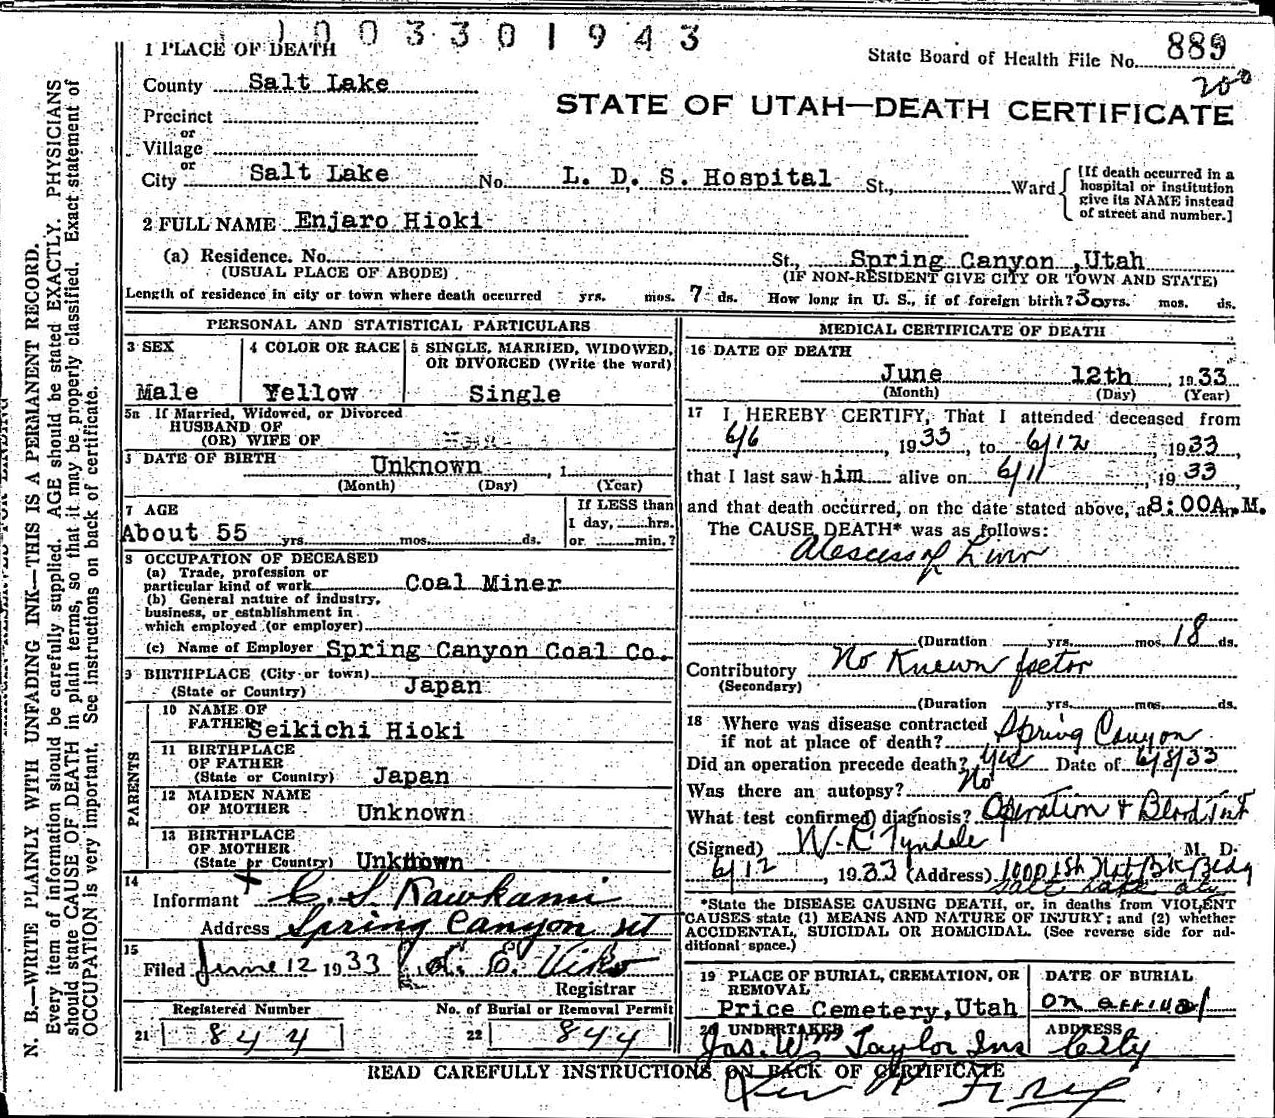 1003301943
State Board of Health File No. 889
200
1 PLACE OF DEATH
County Salt Lake
STATE OF UTAH—DEATH CERTIFICATE
Precinct
or
Village
or
City Salt Lake No. L. D. S. Hospital St., Ward
[If death occurred in a hospital or institution give its NAME instead of street and number.]
2 FULL NAME Enjaro Hioki
(a) Residence. No. St., Spring Canyon ,Utah
(USUAL PLACE OF ABODE) (IF NON-RESIDENT GIVE CITY OR TOWN AND STATE)
Length of residence in city or town where death occurred yrs. mos. 7 ds. How long in U. S., if of foreign birth? 30 yrs. mos. ds.
PERSONAL AND STATISTICAL PARTICULARS
3 SEX
Male
4 COLOR OR RACE
Yellow
5 SINGLE, MARRIED, WIDOWED,
OR DIVORCED (Write the word)
Single
5a If Married, Widowed, or Divorced
HUSBAND OF
(OR) WIFE OF
DATE OF BIRTH Unknown , 1
(Month) (Day) (Year)
7 AGE
About 55 yrs. mos. ds.
If LESS than
1 day, hrs.
or min.?
8 OCCUPATION OF DECEASED
(a) Trade, profession or
particular kind of work Coal Miner
(b) General nature of industry,
business, or establishment in
which employed (or employer)
(c) Name of Employer Spring Canyon Coal Co.
9 BIRTHPLACE (City or town)
(State or Country) Japan
PARENTS
10 NAME OF
FATHER Seikichi Hioki
11 BIRTHPLACE
OF FATHER
(State or Country) Japan
12 MAIDEN NAME
OF MOTHER Unknown
13 BIRTHPLACE
OF MOTHER
(State or Country) Unknown
14
Informant C. S. Kawkami
Address Spring Canyon Ut
15
Filed June 12 1933
Registrar
Registered Number
21 844
No. of Burial or Removal Permit
22 844
MEDICAL CERTIFICATE OF DEATH
16 DATE OF DEATH
June 12th , 1933
(Month) (Day) (Year)
17 I HEREBY CERTIFY, That I attended deceased from
6/6 , 1933 to 6/12 , 1933,
that I last saw him alive on 6/11 , 1933
and that death occurred, on the date stated above, at 8:00A.M.
The CAUSE DEATH* was as follows:
Abscess of Liver
(Duration yrs. mos. 18 ds.
Contributory No Known factor
(Secondary)
(Duration yrs. mos. ds.
18 Where was disease contracted
if not at place of death? Spring Canyon
Did an operation precede death? yes Date of 6/8/33
Was there an autopsy? No
What test confirmed diagnosis? Operation & Blood Test
(Signed) W. R. Tyndale M. D.
6/12 , 1933 (Address) 1000 1st Nat Bk Bldg
Salt Lake City
*State the DISEASE CAUSING DEATH, or, in deaths from VIOLENT
CAUSES state (1) MEANS AND NATURE OF INJURY; and (2) whether
ACCIDENTAL, SUICIDAL OR HOMICIDAL. (See reverse side for ad-
ditional space.)
19 PLACE OF BURIAL, CREMATION, OR
REMOVAL
Price Cemetery,Utah
DATE OF BURIAL
on arrival
20 UNDERTAKER
Jas. W. Taylor Ins
ADDRESS
City
READ CAREFULLY INSTRUCTIONS ON BACK OF CERTIFICATE
N. B.—WRITE PLAINLY WITH UNFADING INK—THIS IS A PERMANENT RECORD.
Every item of information should be carefully supplied. AGE should be stated EXACTLY. PHYSICIANS
should state CAUSE OF DEATH in plain terms, so that it may be properly classified. Exact statement of
OCCUPATION is very important. See instructions on back of certificate.